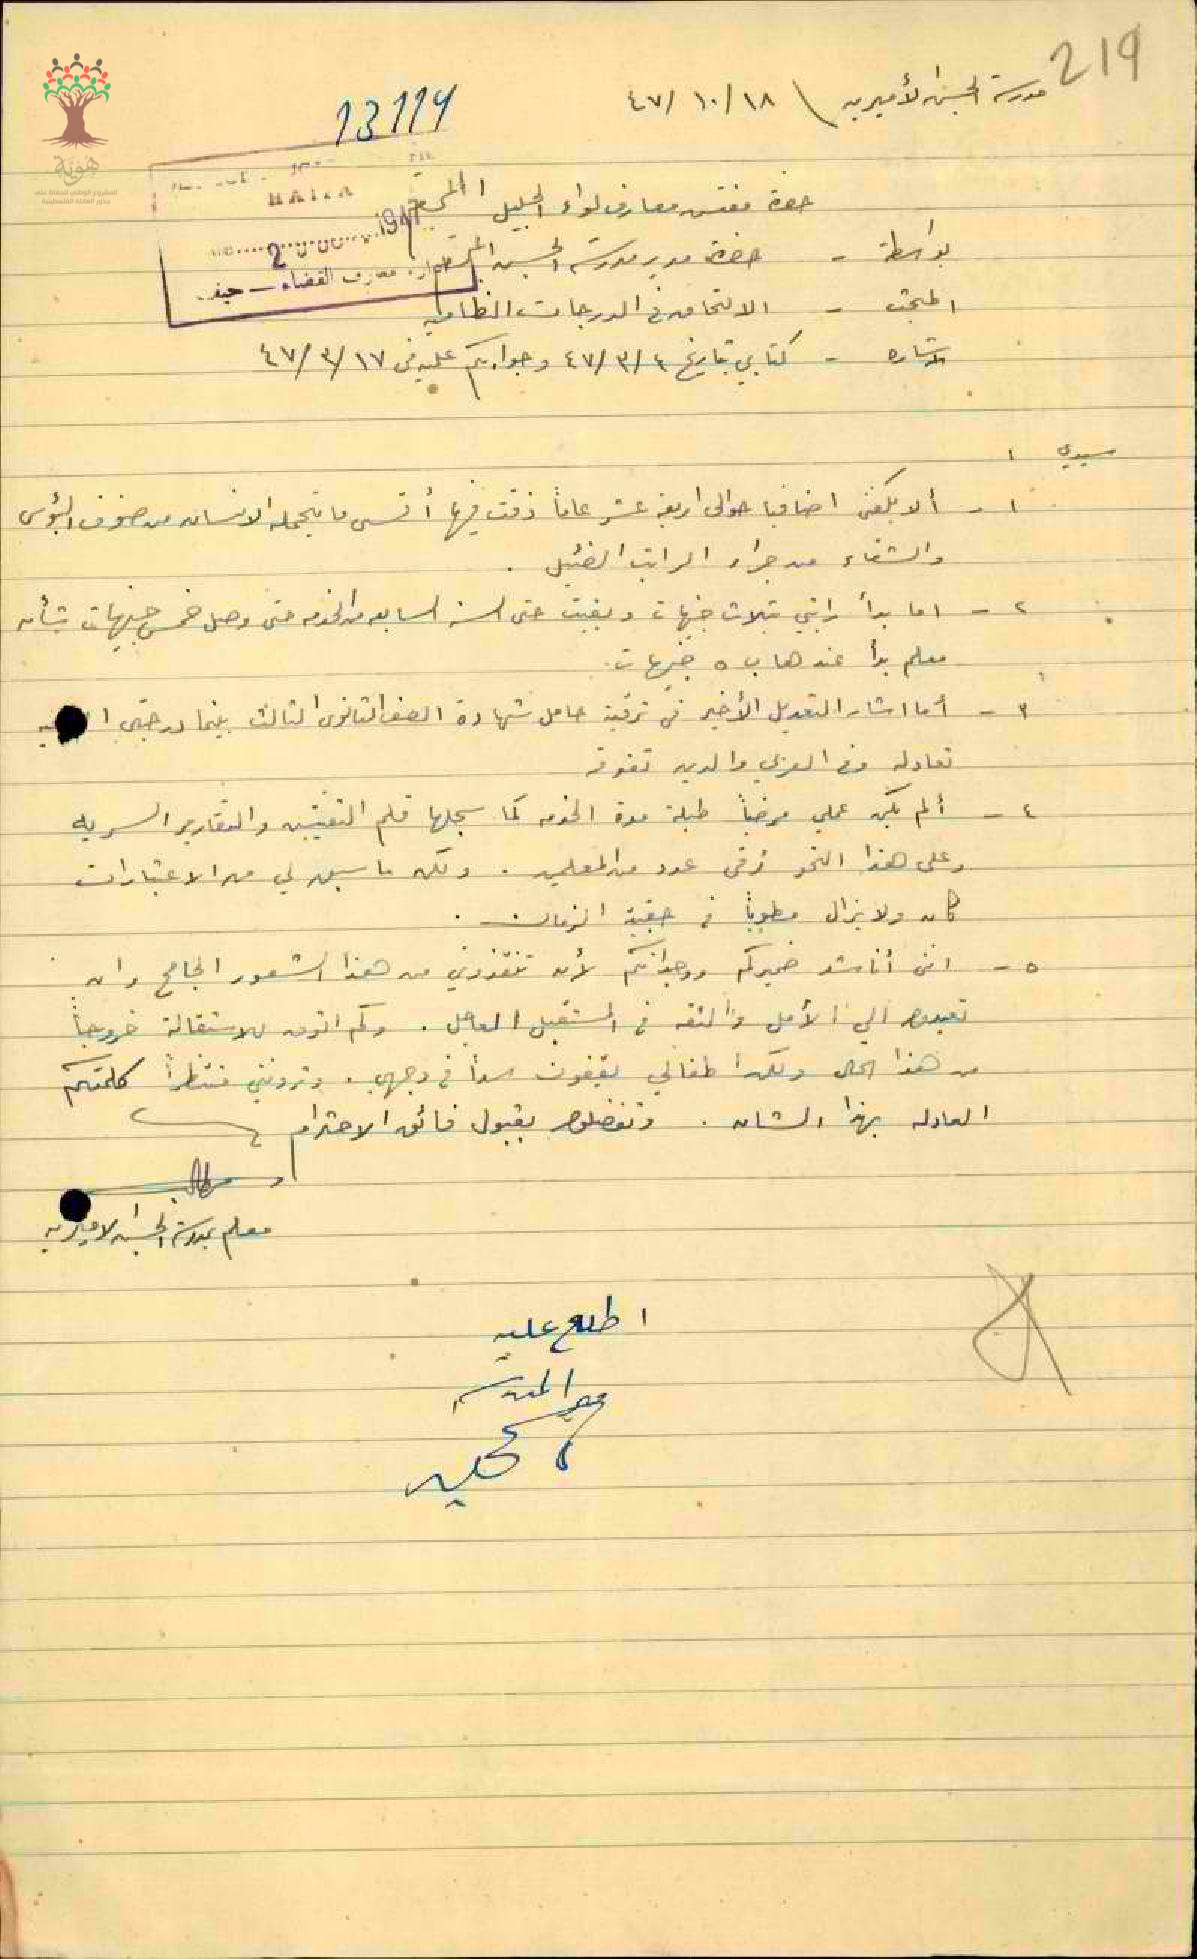 219
مدرسة الجسين الأميريه \ ١٨/١٠/٤٧
13114
هوية
المشروع الوطني للحفاظ على
جذور العائلة الفلسطينية
HAIFA
2 1947
معارف القضاء — حيفا
حضرة مفتش معارف لواء الجليل المحترم
بواسطة - حضرة مدير مدرسة الجسين المحترم
المبحث - الالتحاق في الدرجات النظاميه
الاشاره - كتابي بتاريخ ٤/٣/٤٧ وجوابكم عليه في ١٧/٣/٤٧
سيدي ،
١ - ألا يكفي اضافيا حوالي اربعة عشر عاماً ذقت فيها أقسى ما يتحمله الانسان من صنوف البؤس
والشقاء من جراء الراتب الضئيل .
٢ - اما بدأ راتبي بثلاث جنيهات وبقيت حتى السنه السابعه من الخدمه حتى وصل خمس جنيهات بشأن
معلم بدأ عندها ب ٥ جنيهات .
٣ - أما اشار التعديل الأخير في ترقية حامل شهادة الصف الثانوي الثالث بينما درجتي
تعادله وفي العربي والدين تفوقه
٤ - ألم يكن عملي مرضياً طيلة مدة الخدمه كما سجلها قلم التفتيش والتقارير السريه
وعلى هذا النحو رقي عدد من المعلمين . ولكن ما سبق لي من الاعتبارات
كان ولا يزال مطوياً في حقيبة الزمان .
٥ - انني أناشد ضميركم ووجدانكم لأن تنقذوني من هذا الشعور الجامح وان
تعيدوا الي الأمل والثقه في المستقبل العاجل . وكم اتوق للاستقالة خروجاً
من هذا الحال ولكن اطفالي يقفون سداً في وجهي . وترونني منتظراً كلمتكم
العادله بهذا الشان . وتفضلوا بقبول فائق الاحترام
معلم بمدرسة الجسين الاميريه
اطلع عليه
مدير المدرسة